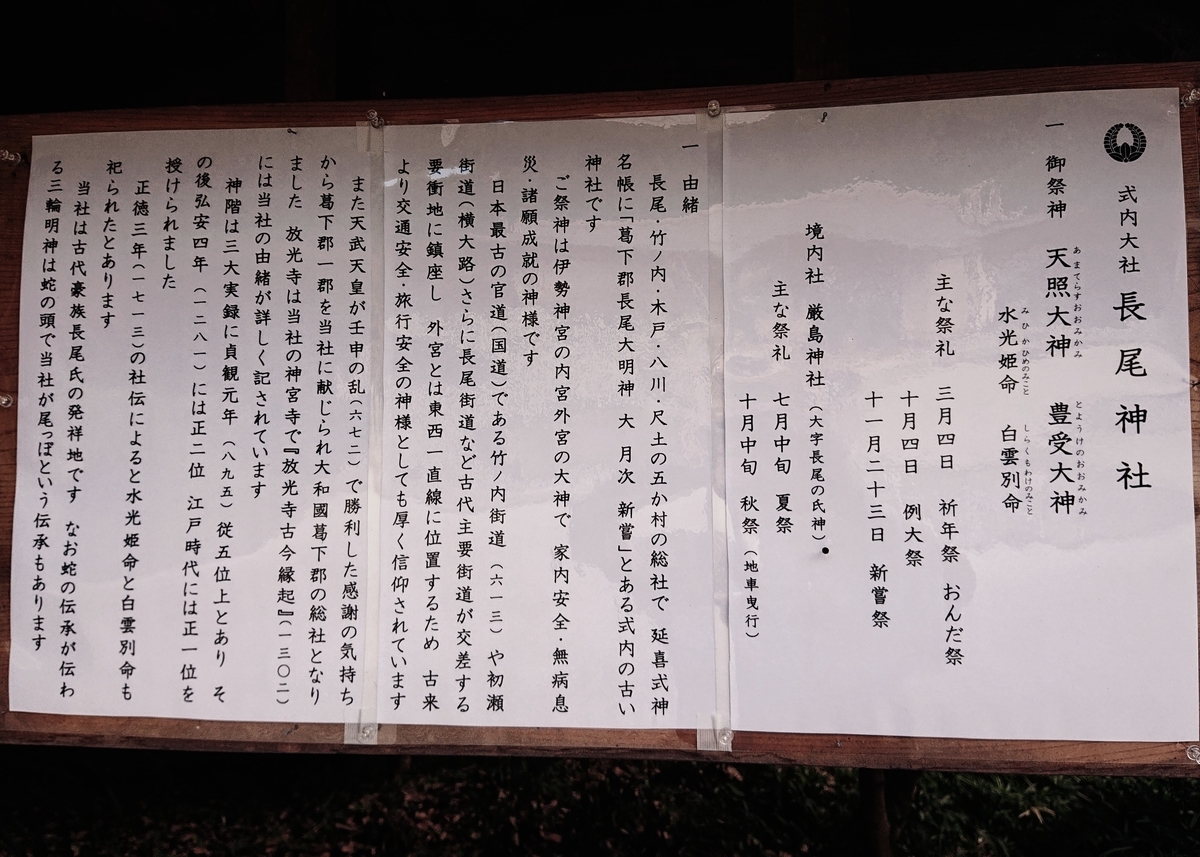 式内大社 長尾神社
一 御祭神 天照大神 豊受大神
あまてらすおおみかみ とようけのおおみかみ
水光姫命 白雲別命
みひかひめのみこと しらくもわけのみこと
主な祭礼 三月四日 祈年祭 おんだ祭
十月四日 例大祭
十一月二十三日 新嘗祭
境内社 厳島神社 (大字長尾の氏神)
主な祭礼 七月中旬 夏祭
十月中旬 秋祭 (地車曳行)
一 由緒
長尾・竹ノ内・木戸・八川・尺土の五か村の総社で 延喜式神
名帳に「葛下郡長尾大明神 大 月次 新嘗」とある式内の古い
神社です
ご祭神は伊勢神宮の内宮外宮の大神で 家内安全・無病息
災・諸願成就の神様です
日本最古の官道(国道)である竹ノ内街道 (六一三) や初瀬
街道(横大路)さらに長尾街道など古代主要街道が交差する
要衝地に鎮座し 外宮とは東西一直線に位置するため 古来
より交通安全・旅行安全の神様としても厚く信仰されています
また天武天皇が壬申の乱(六七二)で勝利した感謝の気持ち
から葛下郡一郡を当社に献じられ大和國葛下郡の総社となり
ました 放光寺は当社の神宮寺で『放光寺古今縁起』(一三〇二)
には当社の由緒が詳しく記されています
神階は三大実録に貞観元年 (八九五) 従五位上とあり そ
の後弘安四年 (一二八一) には正二位 江戸時代には正一位を
授けられました
正徳三年(一七一三)の社伝によると水光姫命と白雲別命も
祀られたとあります
当社は古代豪族長尾氏の発祥地です なお蛇の伝承が伝わ
る三輪明神は蛇の頭で当社が尾っぽという伝承もあります